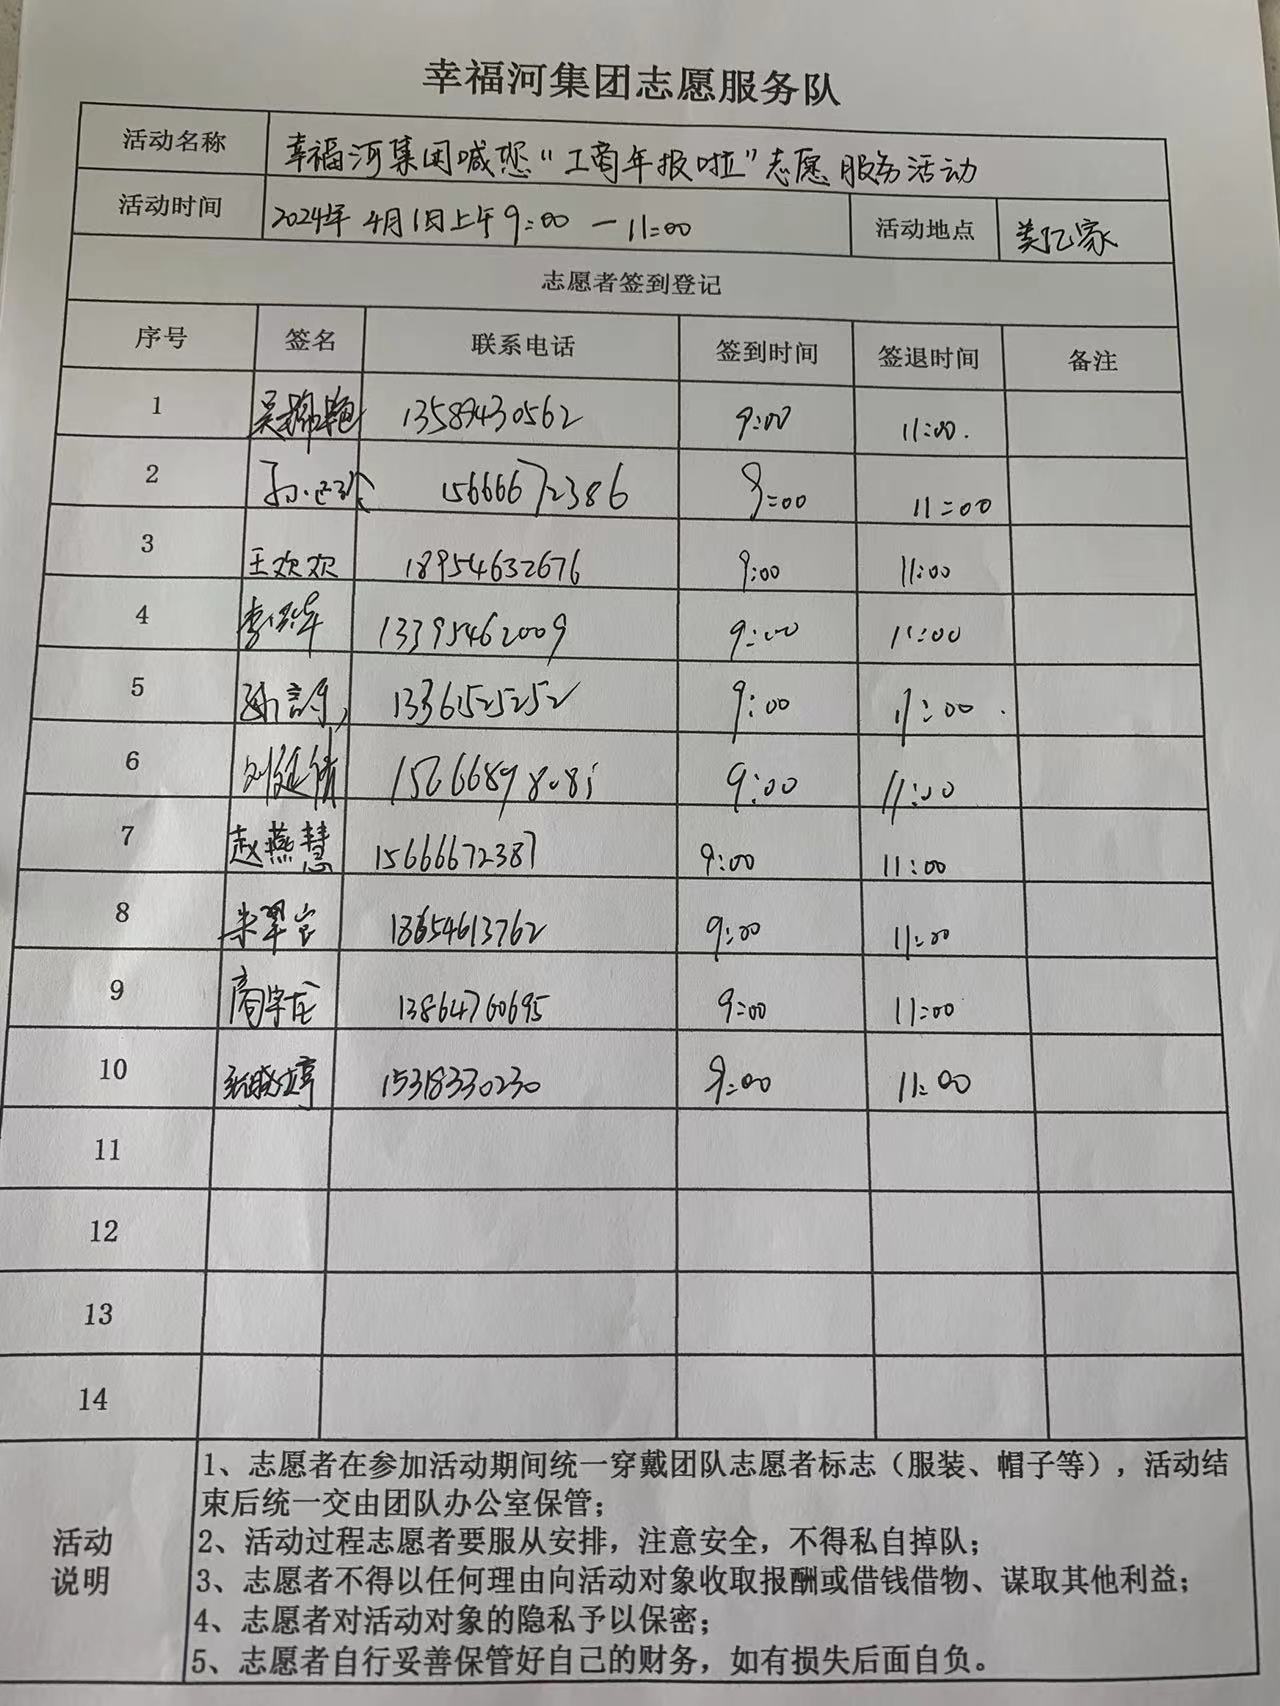 幸福河集团志愿服务队
活动名称 幸福河集团喊您“工商年报啦”志愿服务活动
活动时间 2024年4月1日上午9:00—11:00 活动地点 美亿家
志愿者签到登记
序号 签名 联系电话 签到时间 签退时间 备注
1 吴 艳 13589430562 9:00 11:00.
2 孙 15666672386 9:00 11:00
3 王欢欢 18954632676 9:00 11:00
4 李 华 13395462009 9:00 11:00
5 13361525252 9:00 11:00
6 刘延 15666898081 9:00 11:00
7 赵燕慧 15666672387 9:00 11:00
8 朱翠 18654613762 9:00 11:00
9 商学龙 13864760695 9:00 11:00
10 张晓婷 15318330230 9:00 11:00
11
12
13
14
活动
说明
1、志愿者在参加活动期间统一穿戴团队志愿者标志（服装、帽子等），活动结
束后统一交由团队办公室保管；
2、活动过程志愿者要服从安排，注意安全，不得私自掉队；
3、志愿者不得以任何理由向活动对象收取报酬或借钱借物、谋取其他利益；
4、志愿者对活动对象的隐私予以保密；
5、志愿者自行妥善保管好自己的财务，如有损失后面自负。